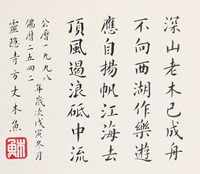 深山老木已成舟
不向西湖作樂遊
應自揚帆江海去
頂風過浪砥中流
公曆一九九八年歲次戊寅冬月
佛曆二五四二
靈隱寺方丈木魚